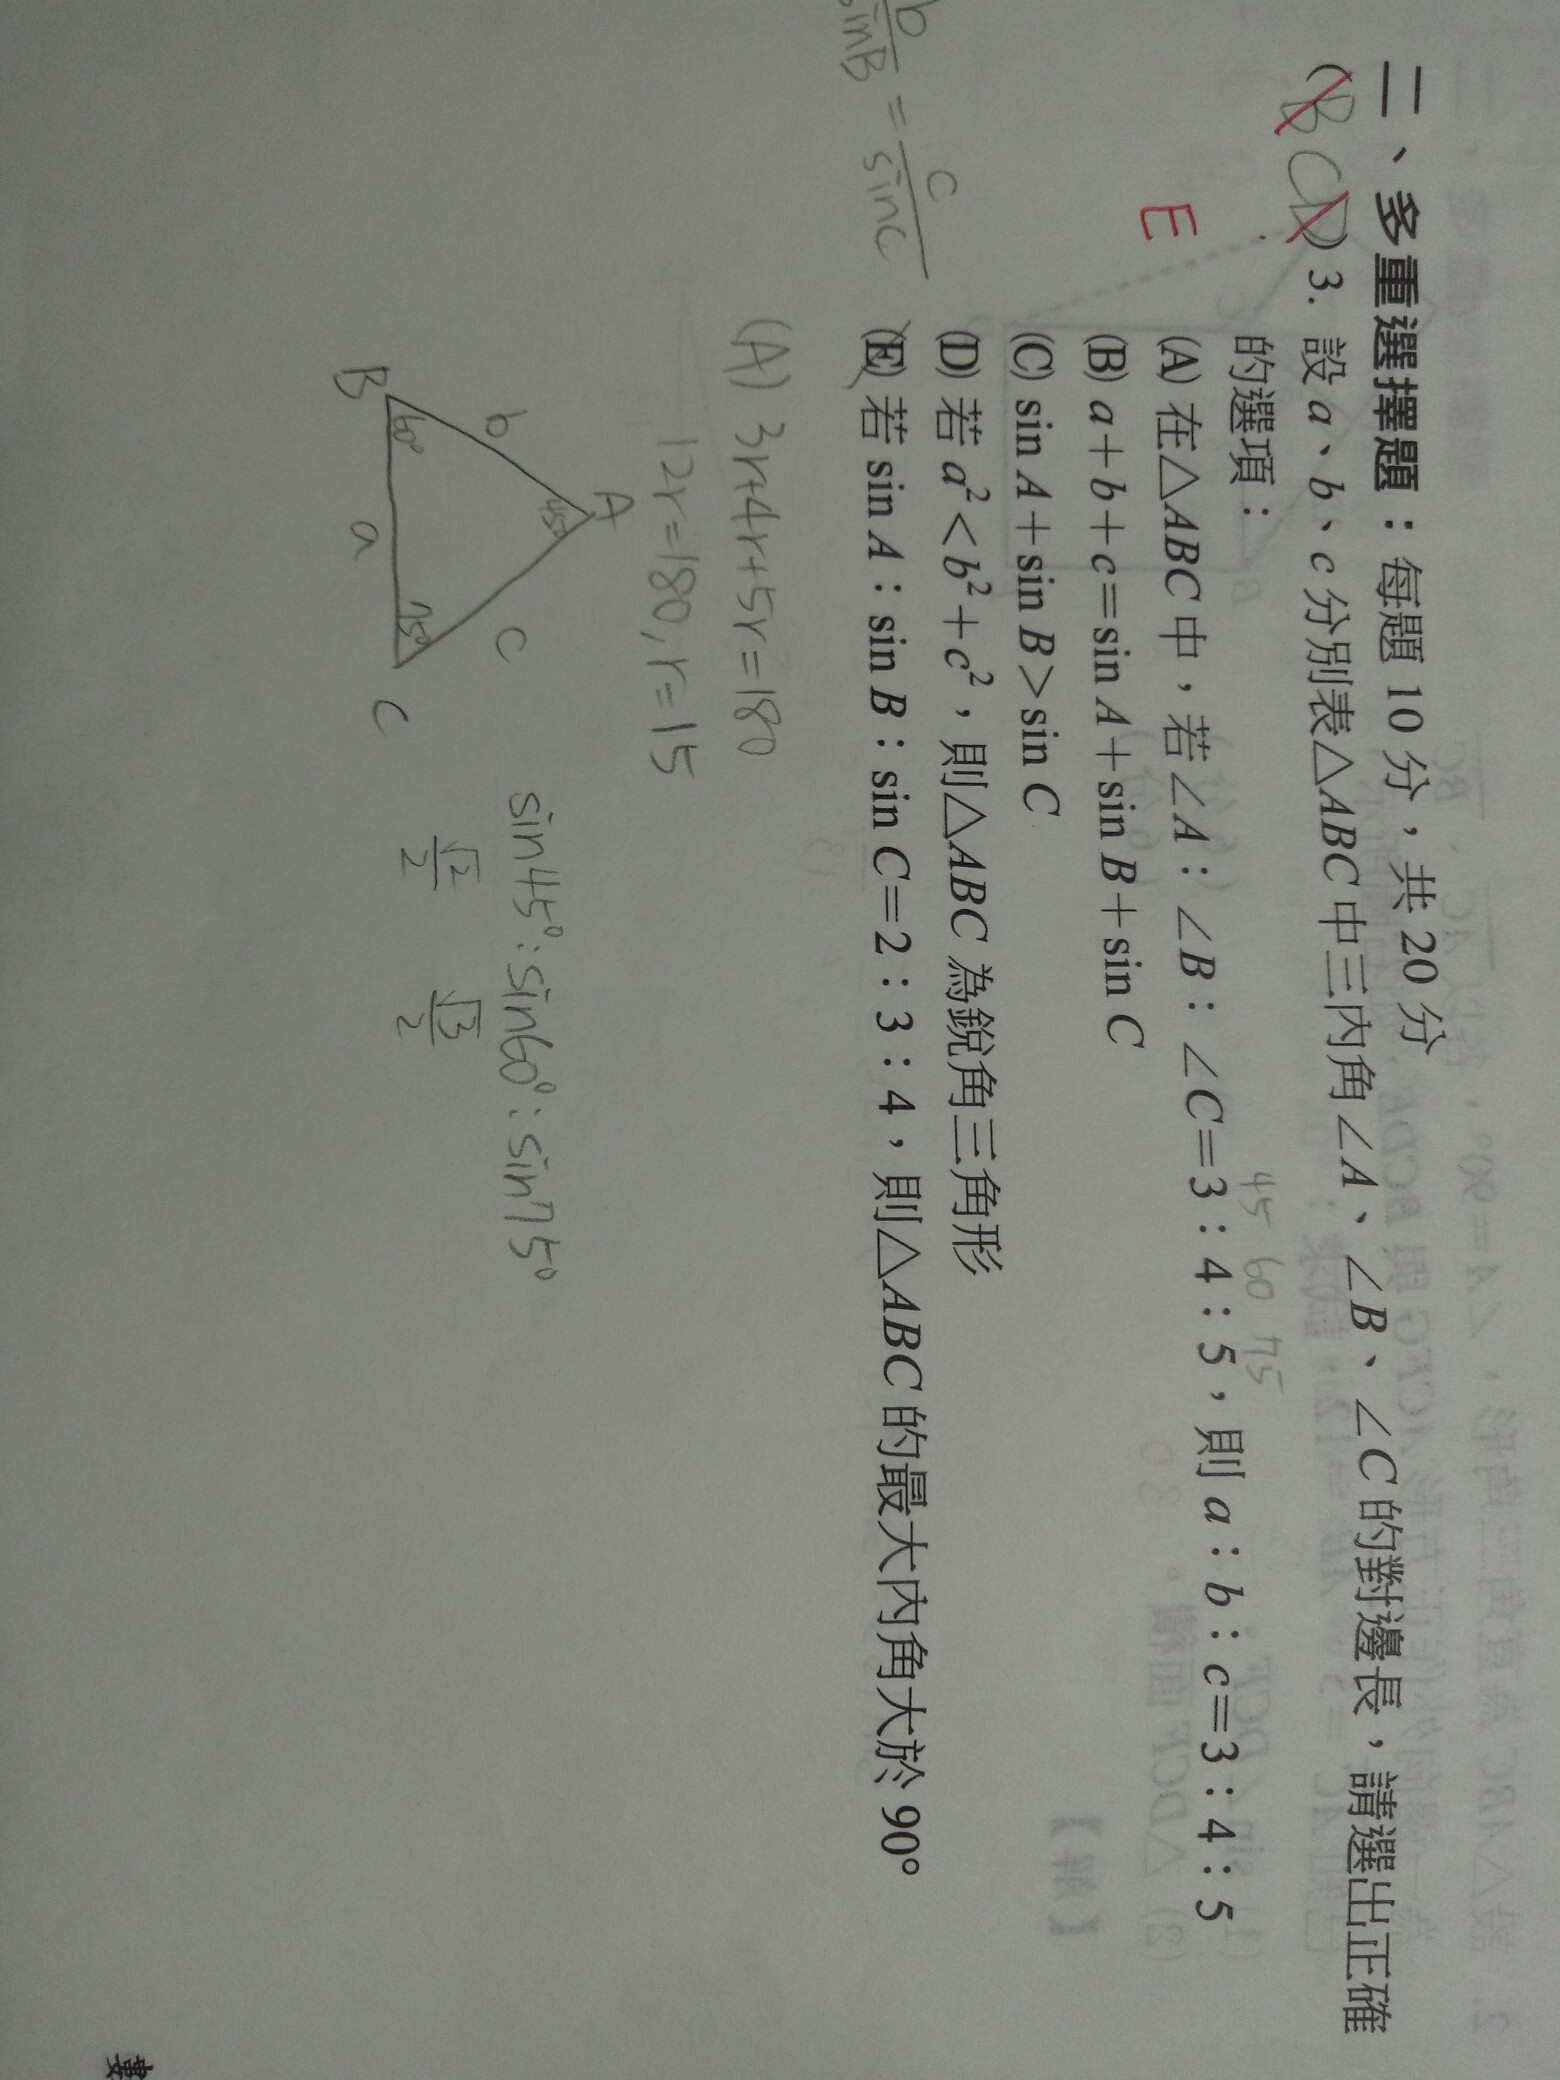 二、多重選擇題：每題 10 分，共 20 分
(BCD) 3. 設 a、b、c 分別表△ABC 中三內角∠A、∠B、∠C 的對邊長，請選出正確
E
的選項：
45 60 75
(A) 在△ABC 中，若∠A：∠B：∠C＝3：4：5，則 a：b：c＝3：4：5
(B) a＋b＋c＝sin A＋sin B＋sin C
(C) sin A＋sin B＞sin C
(D) 若 a²＜b²＋c²，則△ABC 為銳角三角形
(E) 若 sin A：sin B：sin C＝2：3：4，則△ABC 的最大內角大於 90°
b/sinB = c/sinC
(A) 3r+4r+5r=180
12r=180, r=15
A
45°
b
c
B
60°
75°
C
a
sin45°:sin60°:sin75°
√2/2 √3/2